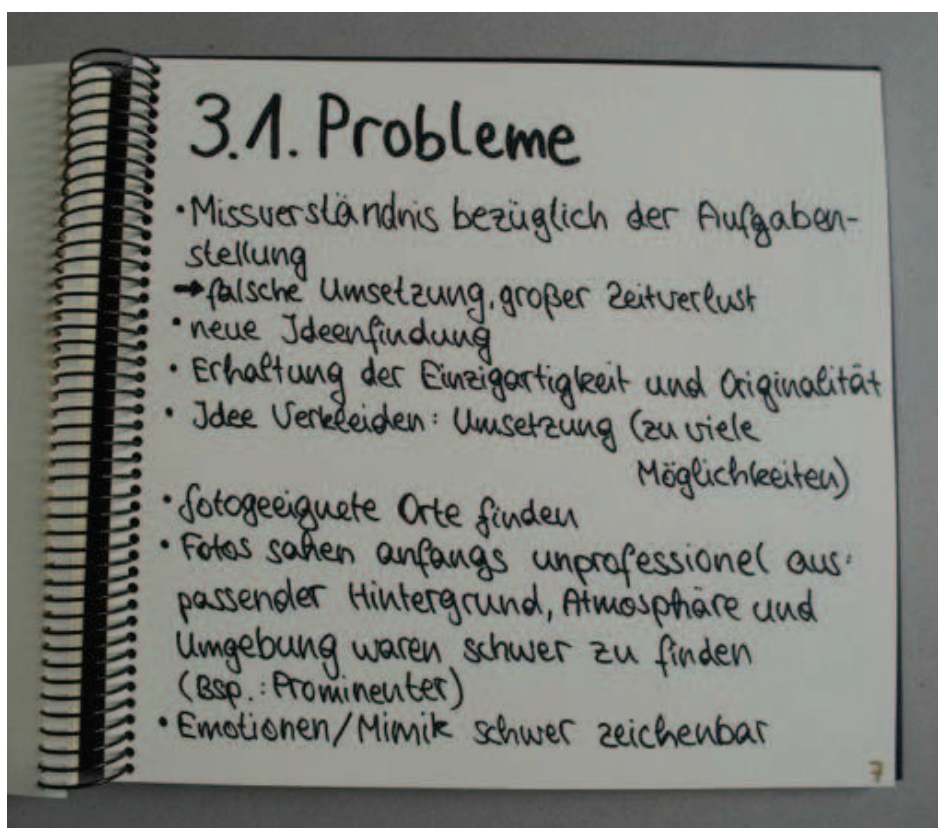 3.1. Probleme
• Missverständnis bezüglich der Aufgaben-
stellung
→ falsche Umsetzung, großer Zeitverlust
• neue Ideenfindung
• Erhaltung der Einzigartigkeit und Originalität
• Idee Verkleiden: Umsetzung (zu viele
Möglichkeiten)
• fotogeeignete Orte finden
• Fotos sahen anfangs unprofessionel aus:
passender Hintergrund, Atmosphäre und
Umgebung waren schwer zu finden
(Bsp.: Prominenter)
• Emotionen/Mimik schwer zeichenbar
7